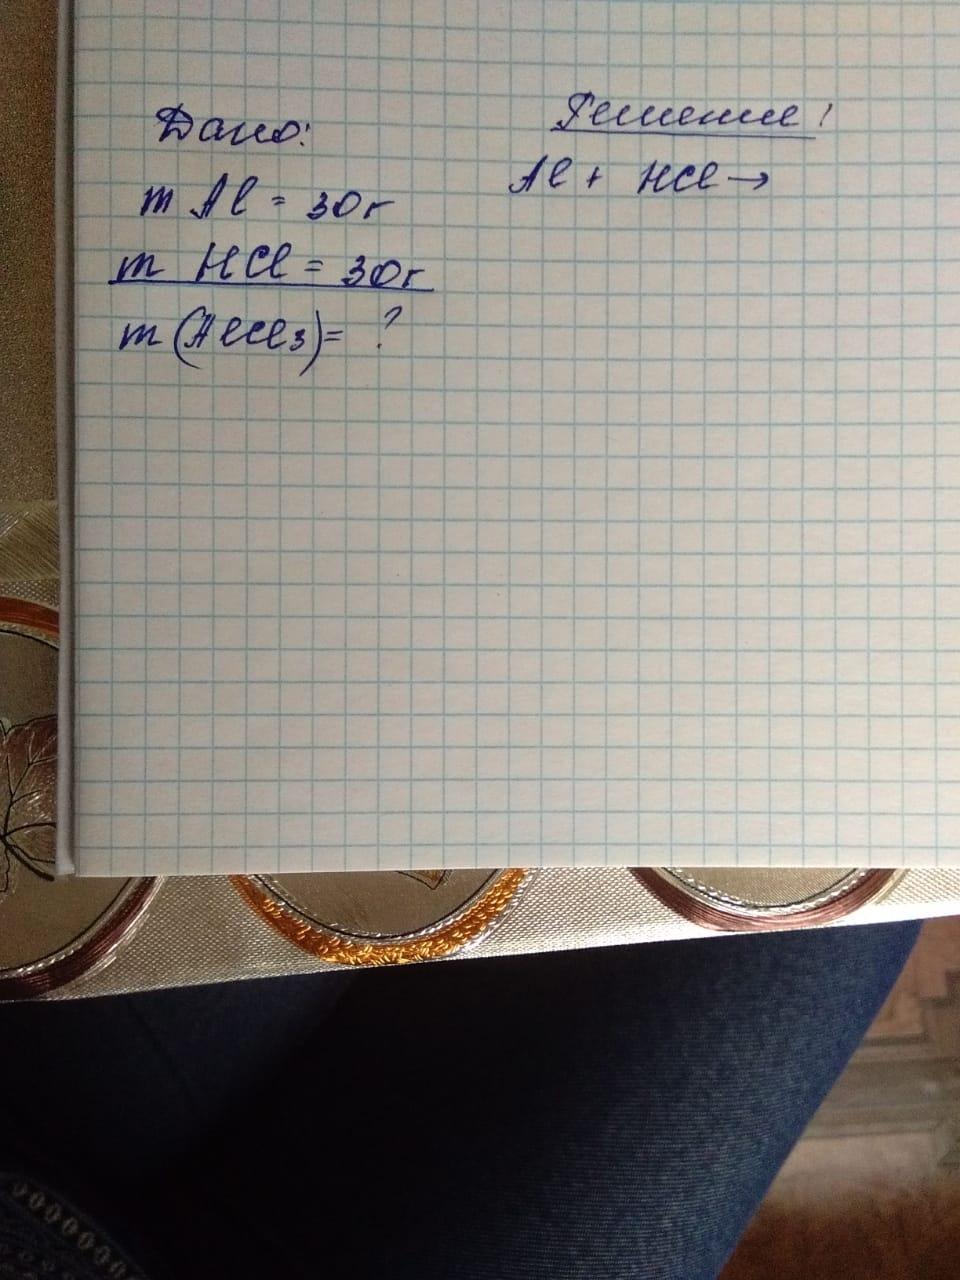 Дано:
m Al = 30г
m HCl = 30г
m (AlCl3) = ?
Решение!
Al + HCl →